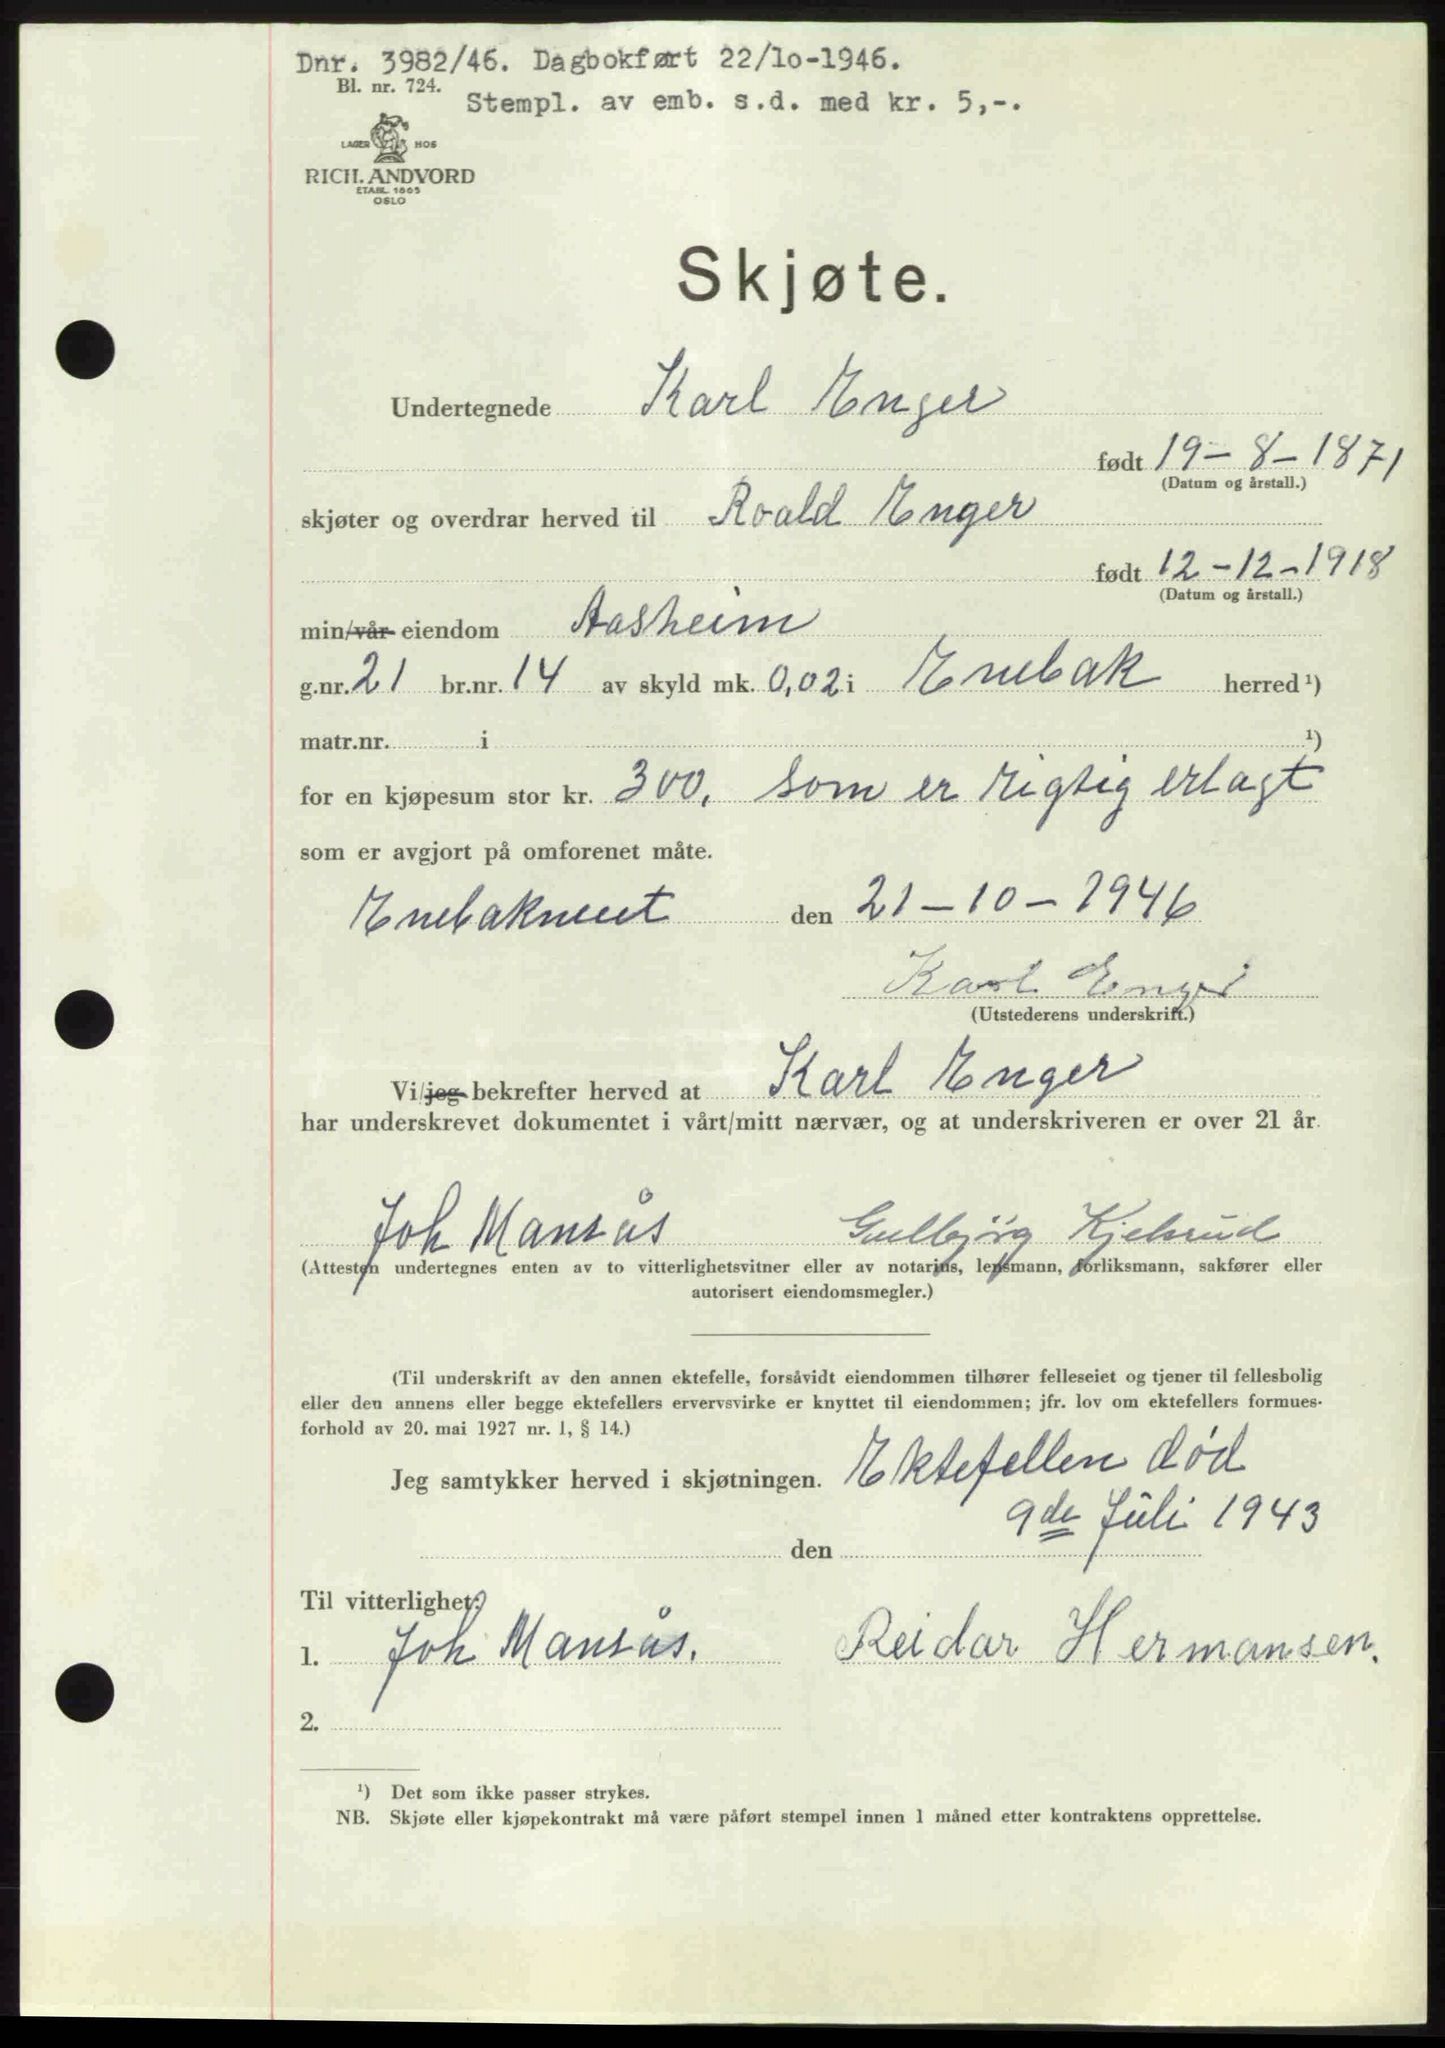 Dnr. 3982/46. Dagbokført 22/10-1946.
Bl. nr. 724.
Stempl. av emb. s.d. med kr. 5,-.
LAGER HOS
RICH. ANDVORD
ETABL. 1865
OSLO
Skjøte.
Undertegnede Karl Enger
født 19-8-1871
(Datum og årstall.)
skjøter og overdrar herved til Roald Enger
født 12-12-1918
(Datum og årstall.)
min/vår eiendom Aasheim
g.nr. 21 br.nr. 14 av skyld mk. 0,02 i Enebak herred ¹)
matr.nr. i ¹)
for en kjøpesum stor kr. 300, som er rigtig erlagt
som er avgjort på omforenet måte.
Enebakneset den 21-10-1946
Karl Enger
(Utstederens underskrift.)
Vi/jeg bekrefter herved at Karl Enger
har underskrevet dokumentet i vårt/mitt nærvær, og at underskriveren er over 21 år.
Joh Mansås Gulbjørg Kjelsrud
(Attesten undertegnes enten av to vitterlighetsvitner eller av notarius, lensmann, forliksmann, sakfører eller
autorisert eiendomsmegler.)
(Til underskrift av den annen ektefelle, forsåvidt eiendommen tilhører felleseiet og tjener til fellesbolig
eller den annens eller begge ektefellers ervervsvirke er knyttet til eiendommen; jfr. lov om ektefellers formues-
forhold av 20. mai 1927 nr. 1, § 14.)
Jeg samtykker herved i skjøtningen. Ektefellen død
9de Juli 1943
den
Til vitterlighet:
1. Joh Mansås. Reidar Hermansen.
2.
¹) Det som ikke passer strykes.
NB. Skjøte eller kjøpekontrakt må være påført stempel innen 1 måned etter kontraktens opprettelse.